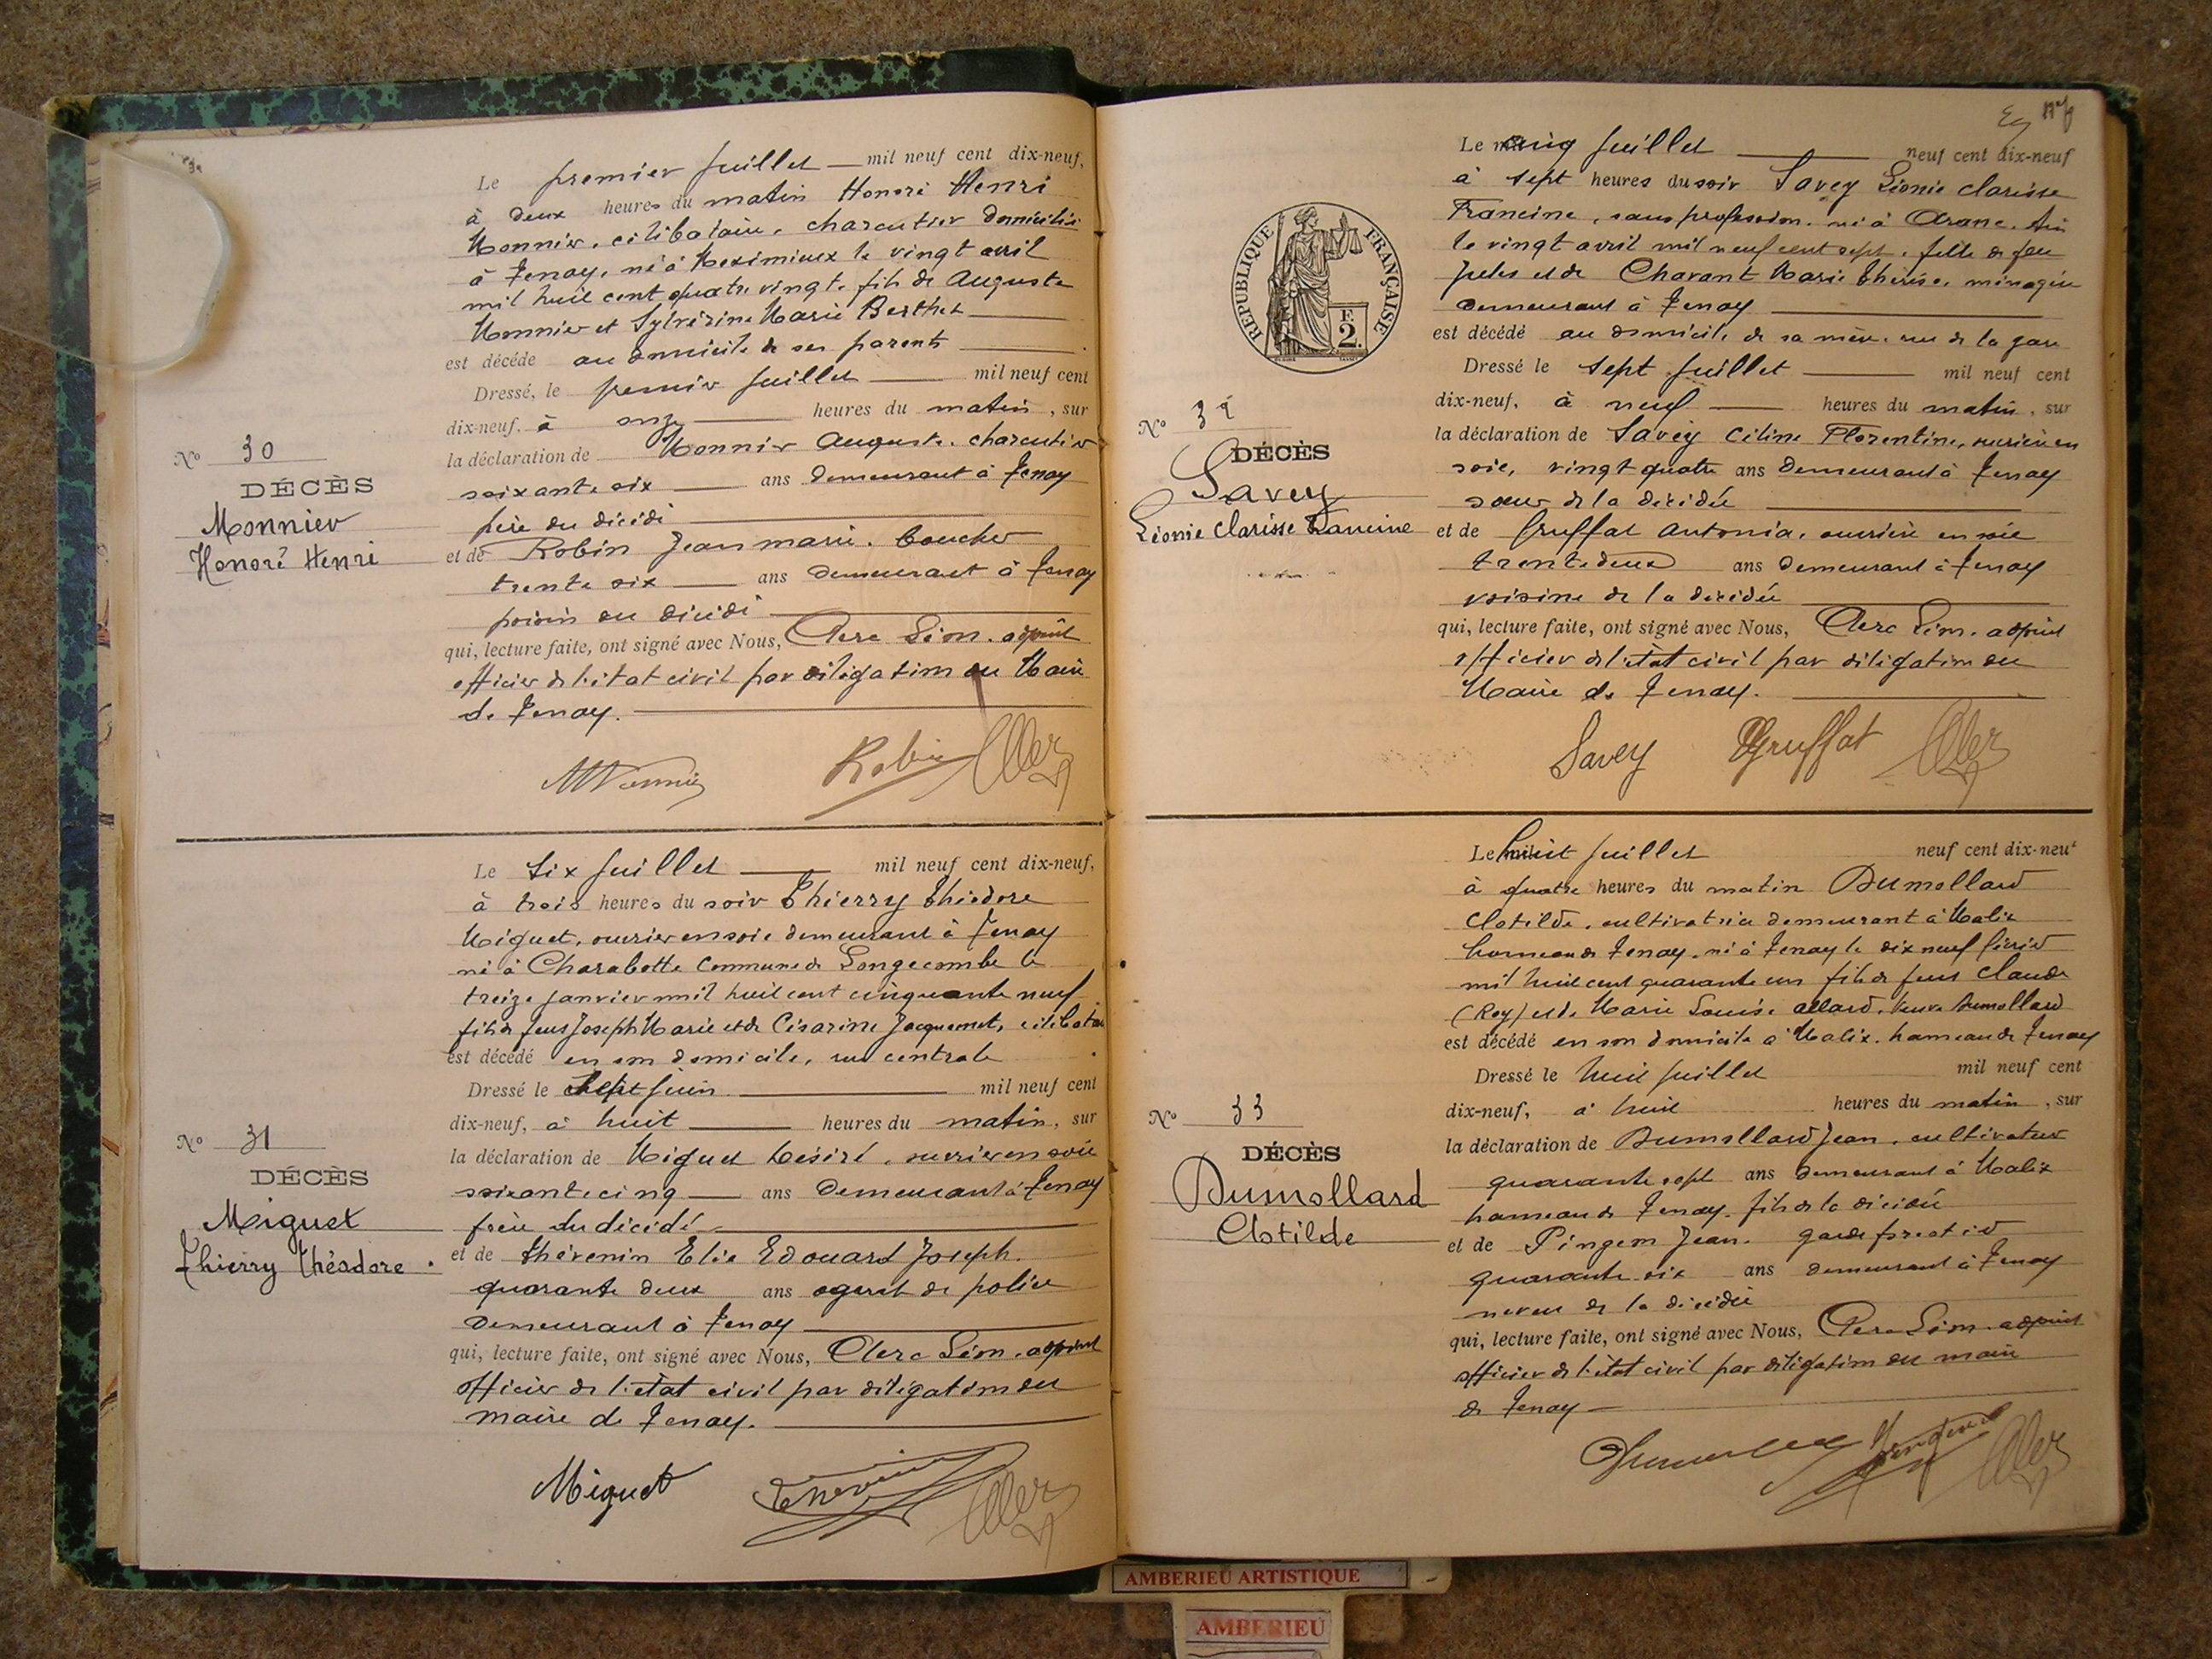 Le premier Juillet mil neuf cent dix-neuf,
à deux heures du matin Honoré Henri
Monnier, célibataire, charcutier domicilié
à Tenay, né à Meximieux le vingt avril
mil huit cent quatre vingt, fils de Auguste
Monnier et Sylvérine Marie Berthet
est décédé au domicile de ses parents
Dressé, le premier Juillet mil neuf cent
dix-neuf, à onze heures du matin, sur
la déclaration de Monnier Auguste, charcutier
soixante six ans demeurant à Tenay
père du décédé
et de Robin Jean marie, boucher
trente six ans demeurant à Tenay
voisin du décédé
qui, lecture faite, ont signé avec Nous, Clerc Léon, adjoint
officier de l'état civil par délégation du Maire
de Tenay.
No 30
DÉCÈS
Monnier
Honoré Henri
Monnier Robin Clerc
Le Six Juillet mil neuf cent dix-neuf,
à trois heures du soir Thierry Théodore
Miguet, ouvrier en soie demeurant à Tenay
né à Charabotte Commune de Longecombe le
treize janvier mil huit cent cinquante neuf
fils de feus Joseph Marie et de Césarine Jacquemet, célibataire
est décédé en son domicile, rue centrale
Dressé le Sept juin mil neuf cent
dix-neuf, à huit heures du matin, sur
la déclaration de Miguet Désiré, ouvrier en soie
soixante cinq ans demeurant à Tenay
frère du décédé
et de Thévenin Elie Edouard Joseph
quarante deux ans agent de police
demeurant à Tenay
qui, lecture faite, ont signé avec Nous, Clerc Léon, adjoint
officier de l'état civil par délégation du
maire de Tenay.
No 31
DÉCÈS
Miguet
Thierry Théodore
Miguet Thévenin Clerc
Le cinq Juillet neuf cent dix-neuf
à sept heures du soir Savey Léonie Clarisse
Francine, sans profession, né à Aranc, Ain
le vingt avril mil neuf cent sept, fille de feu
Jules et de Charvant Marie Thérèse, ménagère
demeurant à Tenay
est décédé au domicile de sa mère, rue de la gare
Dressé le sept Juillet mil neuf cent
dix-neuf, à neuf heures du matin, sur
la déclaration de Savey Céline Florentine, ouvrière en
soie, vingt quatre ans demeurant à Tenay
soeur de la décédée
et de Gruffat Antonia, ouvrière en soie
trente deux ans demeurant à Tenay
voisine de la décédée
qui, lecture faite, ont signé avec Nous, Clerc Léon, adjoint
officier de l'état civil par délégation du
Maire de Tenay.
RÉPUBLIQUE FRANÇAISE
F.
2.
No 32
DÉCÈS
Savey
Léonie Clarisse Francine
Savey Gruffat Clerc
Le huit Juillet neuf cent dix-neuf
à quatre heures du matin Dumollard
Clotilde, cultivatrice demeurant à Malix
hameau de Tenay, né à Tenay le dix neuf février
mil huit cent quarante un fils de feus Claude
(Roy) et de Marie Louise Allard, veuve Dumollard
est décédé en son domicile à Malix, hameau de Tenay
Dressé le huit Juillet mil neuf cent
dix-neuf, à huit heures du matin, sur
la déclaration de Dumollard Jean, cultivateur
quarante sept ans demeurant à Malix
hameau de Tenay, fils de la décédée
et de Pingeon Jean, garde forestier
quarante six ans demeurant à Tenay
neveu de la décédée
qui, lecture faite, ont signé avec Nous, Clerc Léon, adjoint
officier de l'état civil par délégation du maire
de Tenay
No 33
DÉCÈS
Dumollard
Clotilde
Clerc
AMBERIEU ARTISTIQUE
AMBERIEU